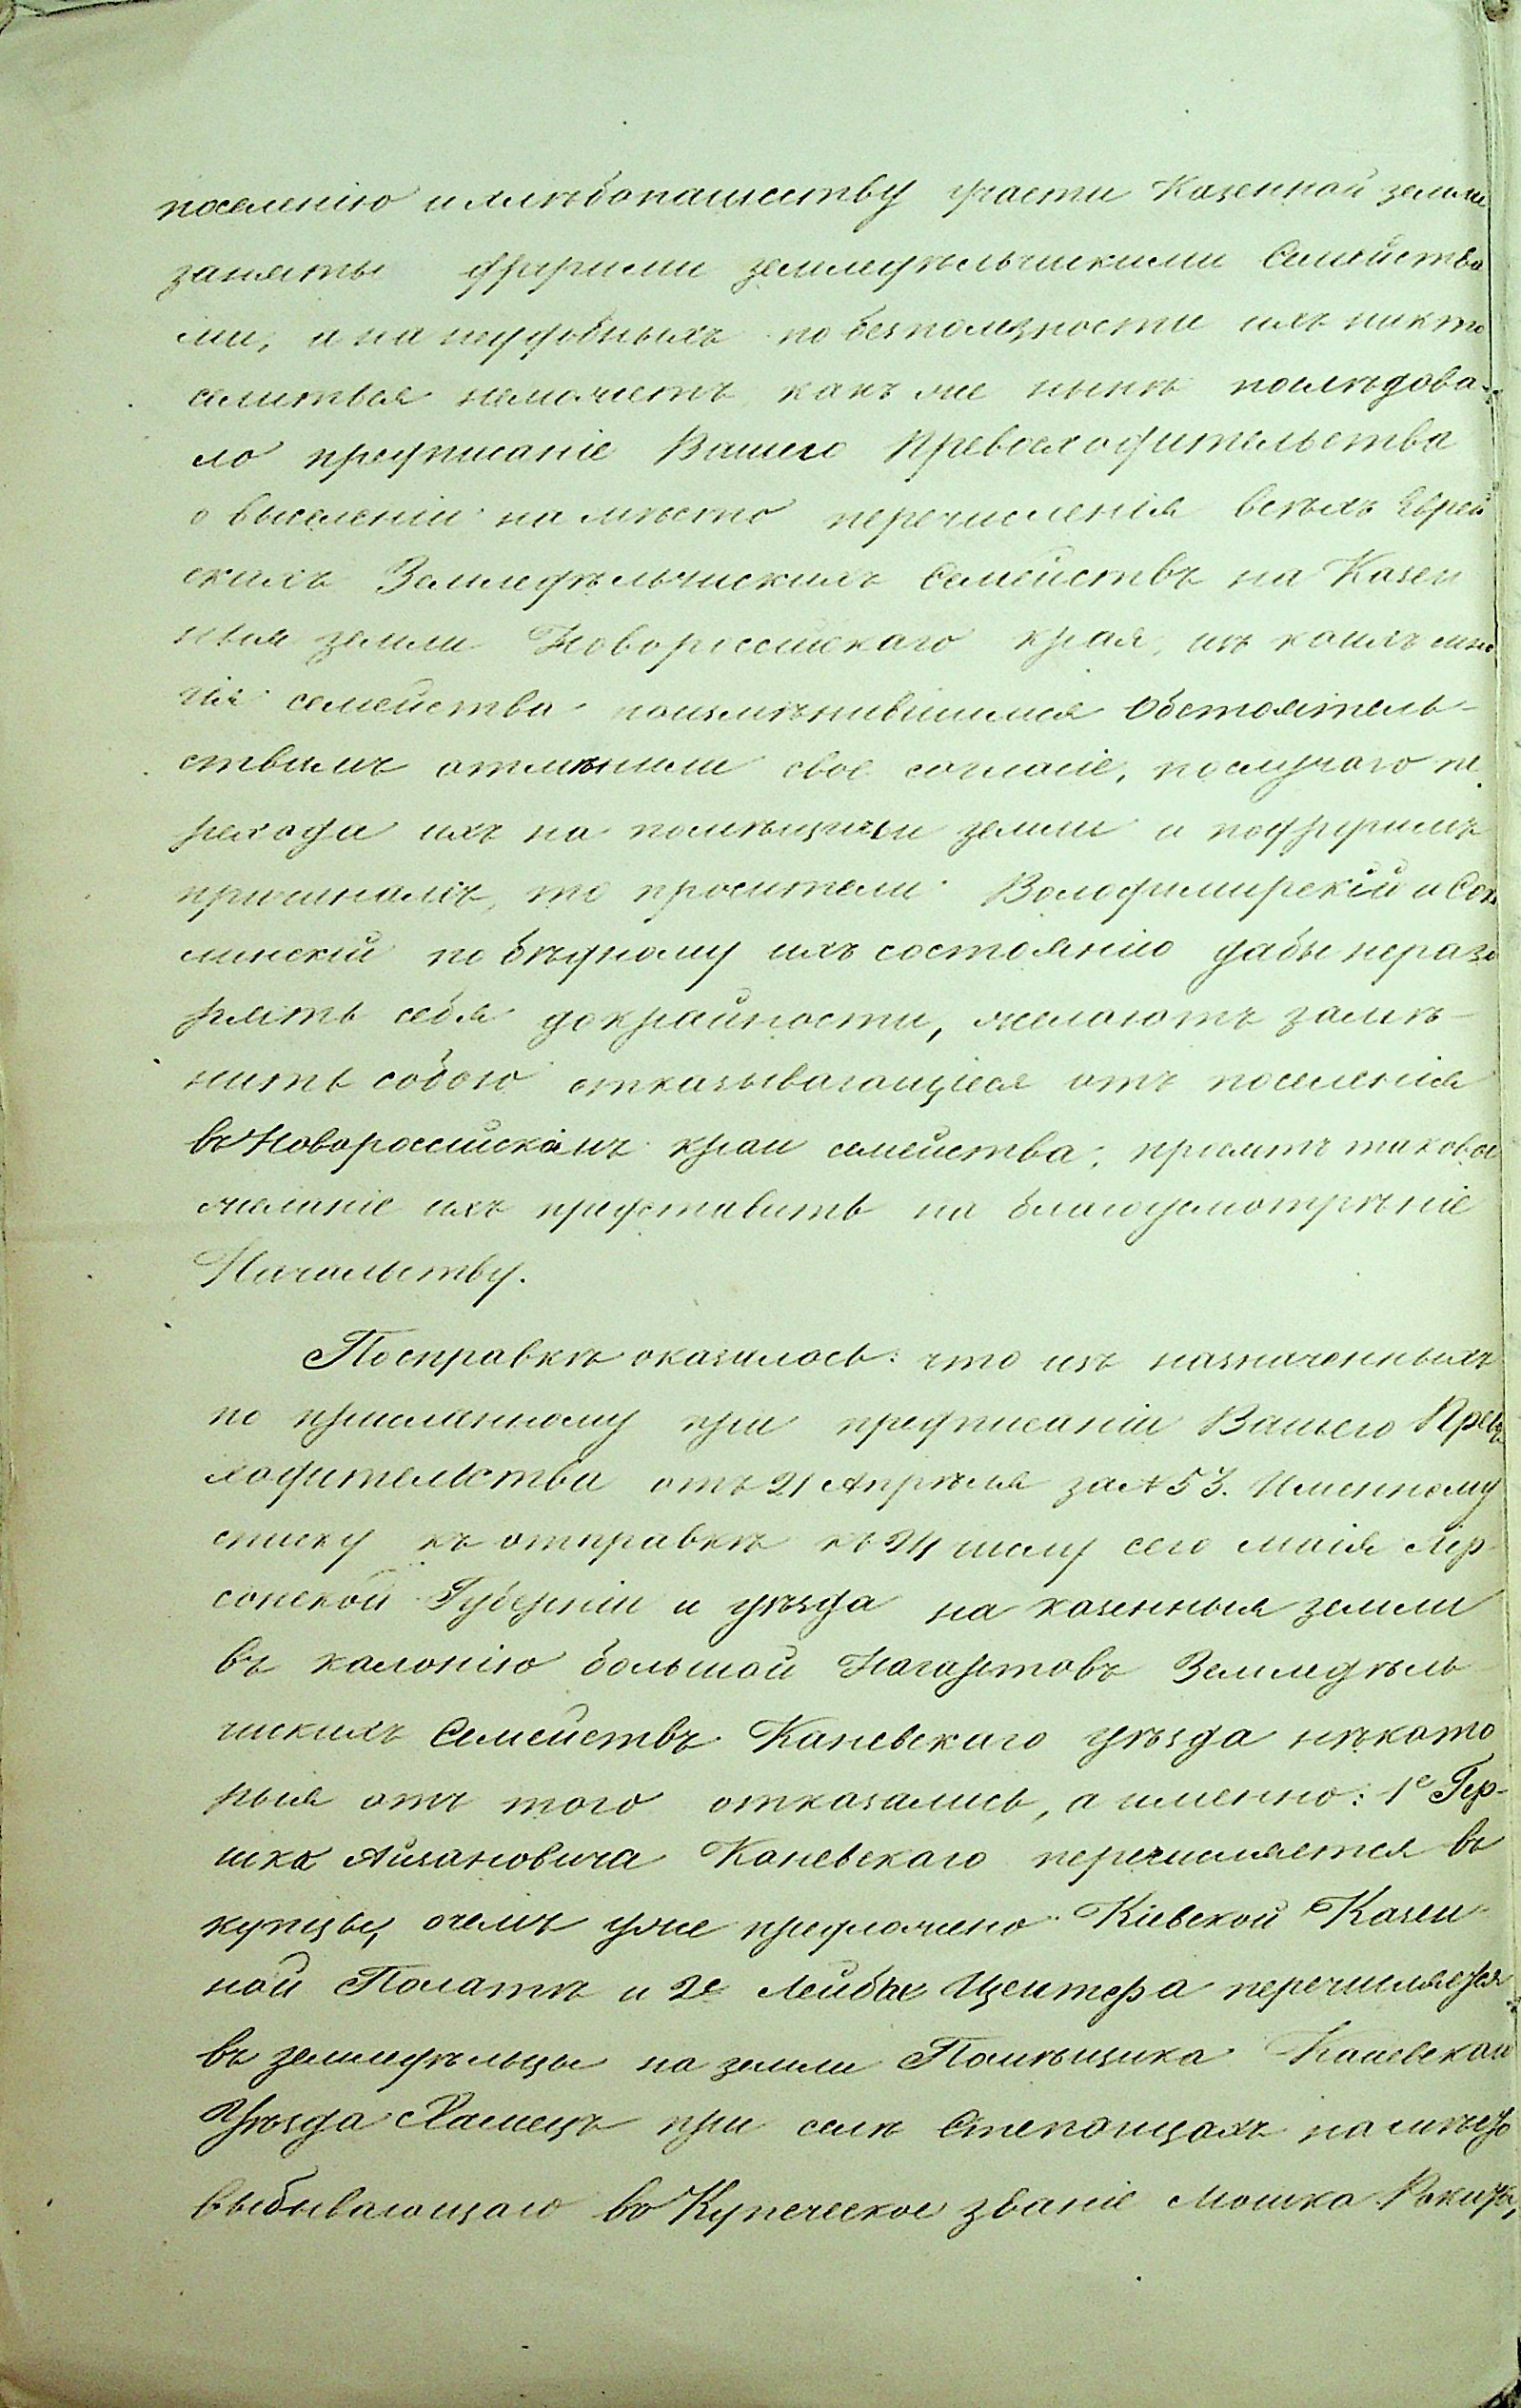 поселенію и хлѣбопашеству участи Казенной земли
заняты другими земледѣльческими Семейства
ми, а на неудобныхъ по безполезности ихъ никто
селиться неможетъ какъ же нынѣ послѣдова-
ло предписаніе Вашего Превосходительства
о выселеніи на мѣсто перечисленія всѣхъ Еврей
скихъ Земледѣльческихъ Семействъ на Казен
ныя земли Новороссійскаго края, изъ коихъ мно
гія семейства поизмѣнившимся Обстоятель-
ствамъ отмѣнили свое согласіе, послучаю пе
рехода ихъ на помѣщичьи земли и подругимъ
причинамъ, то просители Володимирскій и
по бѣдному ихъ состоянію дабы неразо
рять себя докрайности, желаютъ замѣ-
нить собою отказывающіеся отъ поселенія
въ Новороссійскомъ краи семейства, просятъ таковое
желаніе ихъ представить на благоусмотрѣніе
Начальству.
Посправкѣ оказалось: что изъ назначенныхъ
по присланному при предписаніи Вашего Превос
ходительства отъ 21 Апрѣля за № 53. Именному
списку къ отправкѣ къ 24 числу сего маія Хер
сонской Губерніи и уѣзда на казенныя земли
въ колонію большой Нагартовъ Земледѣль
ческихъ Семействъ Каневскаго уѣзда нѣкото
рыя отъ того отказались, а именно: 1е Гер-
шка Айзановича Каневскаго перечисляется въ
купцы, очемъ уже предложено Кіевской Казен
ной Полатѣ и 2е Лейбы Центера перечисляется
въ земледѣльцы на земли Помѣщика Каневскаго
Уѣзда при селѣ Степанцахъ на мѣсто
выбывающаго въ Купеческое званіе Мошка